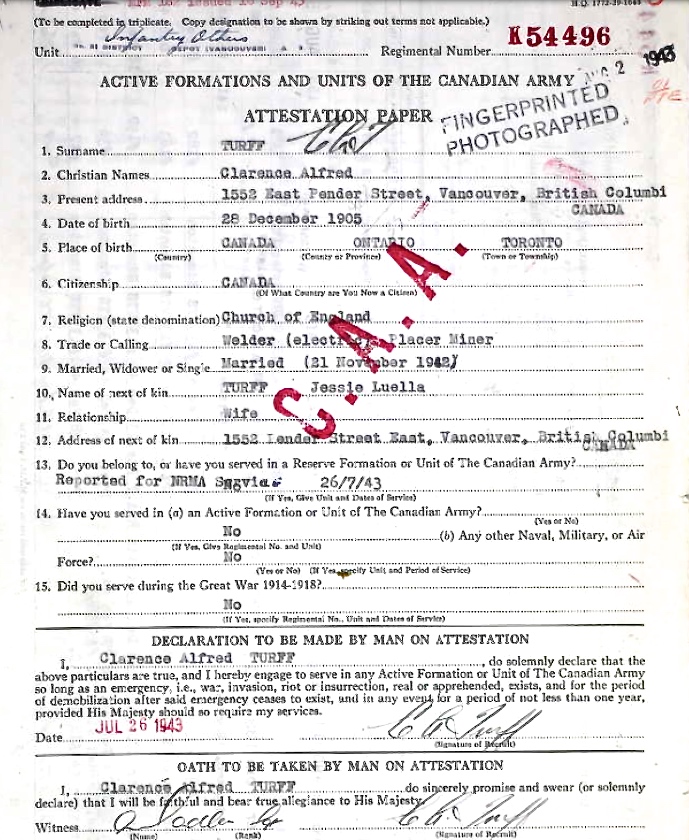 H.Q. 1772-39-1643
(To be completed in triplicate. Copy designation to be shown by striking out terms not applicable.)
Infantry Others
Unit DISTRICT DEPOT (VANCOUVER) Regimental Number K54496
1943
ACTIVE FORMATIONS AND UNITS OF THE CANADIAN ARMY
ATTESTATION PAPER
FINGERPRINTED
PHOTOGRAPHED
1. Surname TURFF
2. Christian Names Clarence Alfred
3. Present address 1552 East Pender Street, Vancouver, British Columbi
CANADA
4. Date of birth 28 December 1905
5. Place of birth CANADA ONTARIO TORONTO
(Country) (County or Province) (Town or Township)
6. Citizenship CANADA
(Of What Country are You Now a Citizen)
7. Religion (state denomination) Church of England
8. Trade or Calling Welder (electric) Placer Miner
9. Married, Widower or Single Married (21 November 1942)
C.A.A.
10. Name of next of kin TURFF Jessie Luella
11. Relationship Wife
12. Address of next of kin 1552 Lender Street East, Vancouver, British Columbi
CANADA
13. Do you belong to, or have you served in a Reserve Formation or Unit of The Canadian Army?
Reported for NRMA 26/7/43
(If Yes, Give Unit and Dates of Service)
14. Have you served in (a) an Active Formation or Unit of The Canadian Army?
(Yes or No)
No (b) Any other Naval, Military, or Air
(If Yes, Give Regimental No. and Unit)
Force? No
(Yes or No) (If Yes, specify Unit and Period of Service)
15. Did you serve during the Great War 1914-1918?
No
(If Yes, specify Regimental No., Unit and Dates of Service)
DECLARATION TO BE MADE BY MAN ON ATTESTATION
I, Clarence Alfred TURFF, do solemnly declare that the
above particulars are true, and I hereby engage to serve in any Active Formation or Unit of The Canadian Army
so long as an emergency, i.e., war, invasion, riot or insurrection, real or apprehended, exists, and for the period
of demobilization after said emergency ceases to exist, and in any event for a period of not less than one year,
provided His Majesty should so require my services.
JUL 26 1943
Date C A Turff
(Signature of Recruit)
OATH TO BE TAKEN BY MAN ON ATTESTATION
I, Clarence Alfred TURFF do sincerely promise and swear (or solemnly
declare) that I will be faithful and bear true allegiance to His Majesty.
Witness C A Turff
(Name) (Rank) (Signature of Recruit)